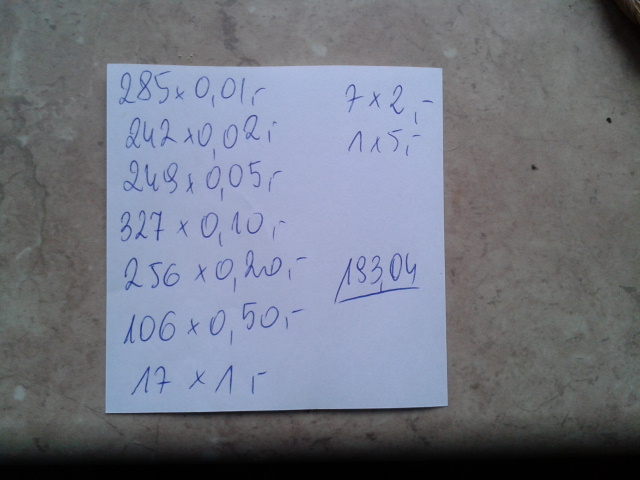 285 x 0,01,-
242 x 0,02,-
249 x 0,05,-
327 x 0,10,-
256 x 0,20,-
106 x 0,50,-
17 x 1,-
7 x 2,-
1 x 5,-
193,04